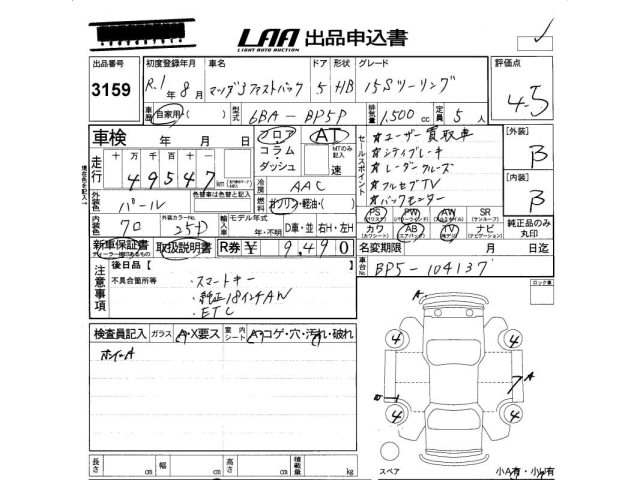 LAA 出品申込書
LIGHT AUTO AUCTION
出品番号 3159
初度登録年月 車名 ドア 形状 グレード
R.1年 8月 マツダ3ファストバック 5 HB 15Sツーリング
評価点 4.5
車歴 自家用・( ) 型式 6BA-BP5P 排気量 1,500 cc 定員 5人
車検 年 月 日
フロア・コラム・ダッシュ
AT
MTのみ記入 速
走行 十 万 千 百 十 一
49547 km
冷房 AAC
外装色 パール
色替車は色替と記入
燃料 ガソリン・軽油・( )
内装色 クロ 外装カラーNo. 25D
輸入車 モデル年式 年・不明 D車・並 右H・左H
新車保証書 取扱説明書 R券 ¥ 9,490
ディーラー印のあるもの
現在色を記入
セールスポイント
☆ユーザー買取車
☆シティブレーキ
☆レーダークルーズ
☆フルセグTV
☆バックモニター
【外装】 B
【内装】 B
PS (パワステ) PW (パワーウインド) AW (アルミ) SR (サンルーフ)
カワ (カワシート) AB (エアバッグ) TV ナビ (ナビゲーション)
純正品のみ丸印
名変期限 月 日迄
車台No. BP5-104137
ロック車
注意事項
後日品【 】
不具合箇所等
・スマートキー
・純正18インチAW
・ETC
検査員記入 ガラス A・X要ス 室内シート A・コゲ・穴・汚れ・破れ
ホイールA
A
4 4
A
4 4
長さ cm 幅 cm 高さ cm 積載量 kg
スペア
小A有・小W有